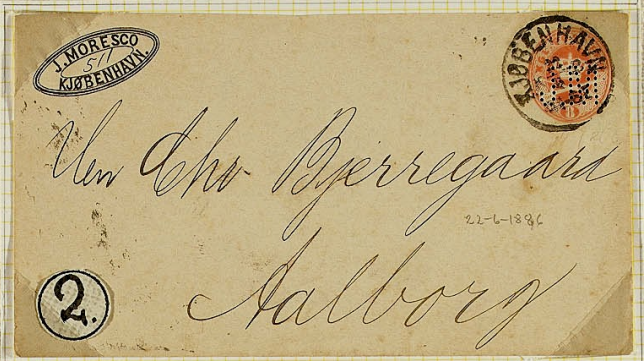 J. MORESCO
511
KJØBENHAVN.
KJØBENHAVN
Chr Bjerregaard
22-6-1886
Aalborg
2.